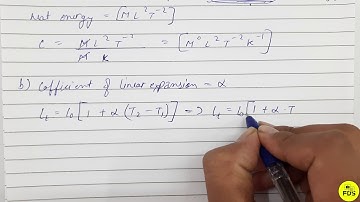 Heat energy = [M L² T⁻²]
C = M L² T⁻² / M K = [M⁰ L² T⁻² K⁻¹]
b) Coefficient of linear expansion - α
Lₜ = L₀ [1 + α (T₂ - T₁)] => Lₜ = L₀ [1 + α · T
FDS